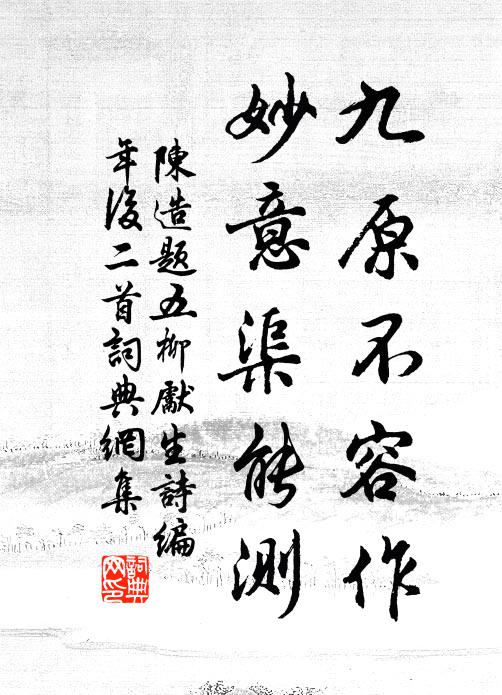 九原不容作
妙意渠能測
陳造題五柳獻生詩編
年後二首詞典網集
詞典
网印